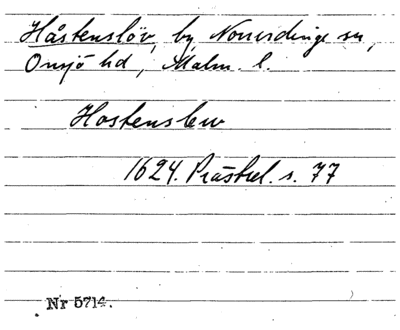 Håstenslöv, by Norrvidinge sn,
Onsjö hd, Malm. l.
Hostenslew
1624. Prästrel. s. 77
Nr 5714.